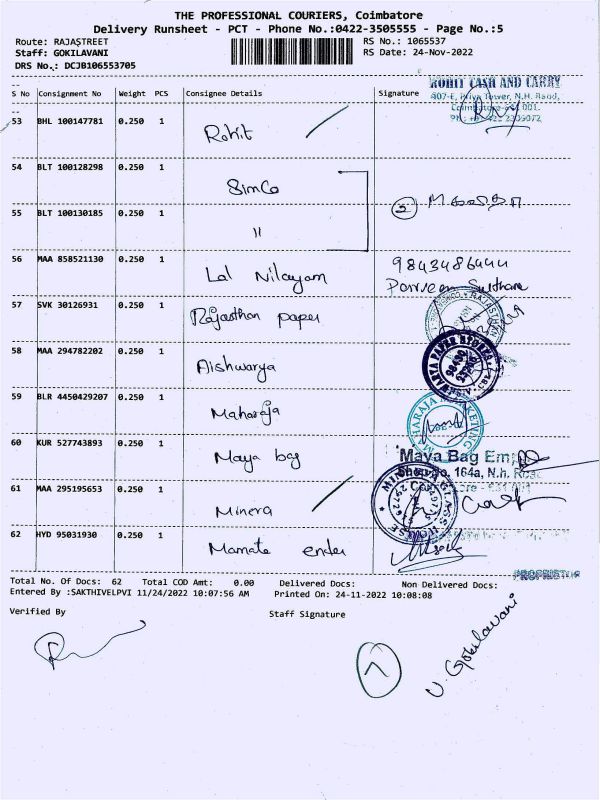 THE PROFESSIONAL COURIERS, Coimbatore
Delivery Runsheet - PCT - Phone No.:0422-3505555 - Page No.:5
Route: RAJASTREET
RS No.: 1065537
Staff: GOKILAVANI
RS Date: 24-Nov-2022
DRS No.: DCJB106553705
S No Consignment No Weight PCS Consignee Details Signature
ROHIT CASH AND CARRY
407-E, Priya Tower, N.H. Road,
53 BHL 100147781 0.250 1 Rohit
54 BLT 100128298 0.250 1 Simco
2
55 BLT 100130185 0.250 1 "
56 MAA 858521130 0.250 1 Lal Nilayam 9843486444
Parveen Sulthana
57 SVK 30126931 0.250 1 Rajasthan paper
58 MAA 294782202 0.250 1 Aishwarya
AISHWARYA PAPER STORES
59 BLR 4450429207 0.250 1 Maharaja
MAHARAJA MARKETING
60 KUR 527743893 0.250 1 Maya bag
Maya Bag
Shop No. 164a, N.h. Road
61 MAA 295195653 0.250 1 Minera
62 HYD 95031930 0.250 1 Mamate ender
PROPRIETOR
Total No. Of Docs: 62 Total COD Amt: 0.00 Delivered Docs: Non Delivered Docs:
Entered By :SAKTHIVELPVI 11/24/2022 10:07:56 AM Printed On: 24-11-2022 10:08:08
Verified By Staff Signature
7
V. Gokilavani